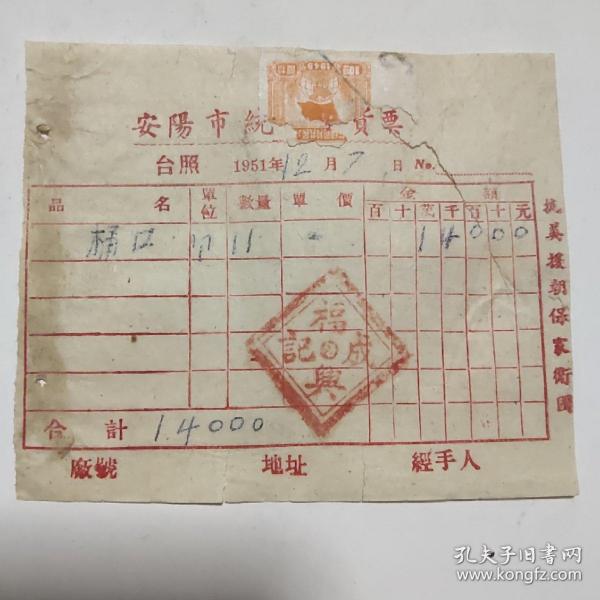 安陽市統 貨票
台照 1951年12月7日 No.
品名 單位 數量 單價 金額
百十萬千百十元
桶 11 14000
福成興記
合計 14000
廠號 地址 經手人
抗美援朝保家衛國
孔夫子旧书网
www.kongfz.com